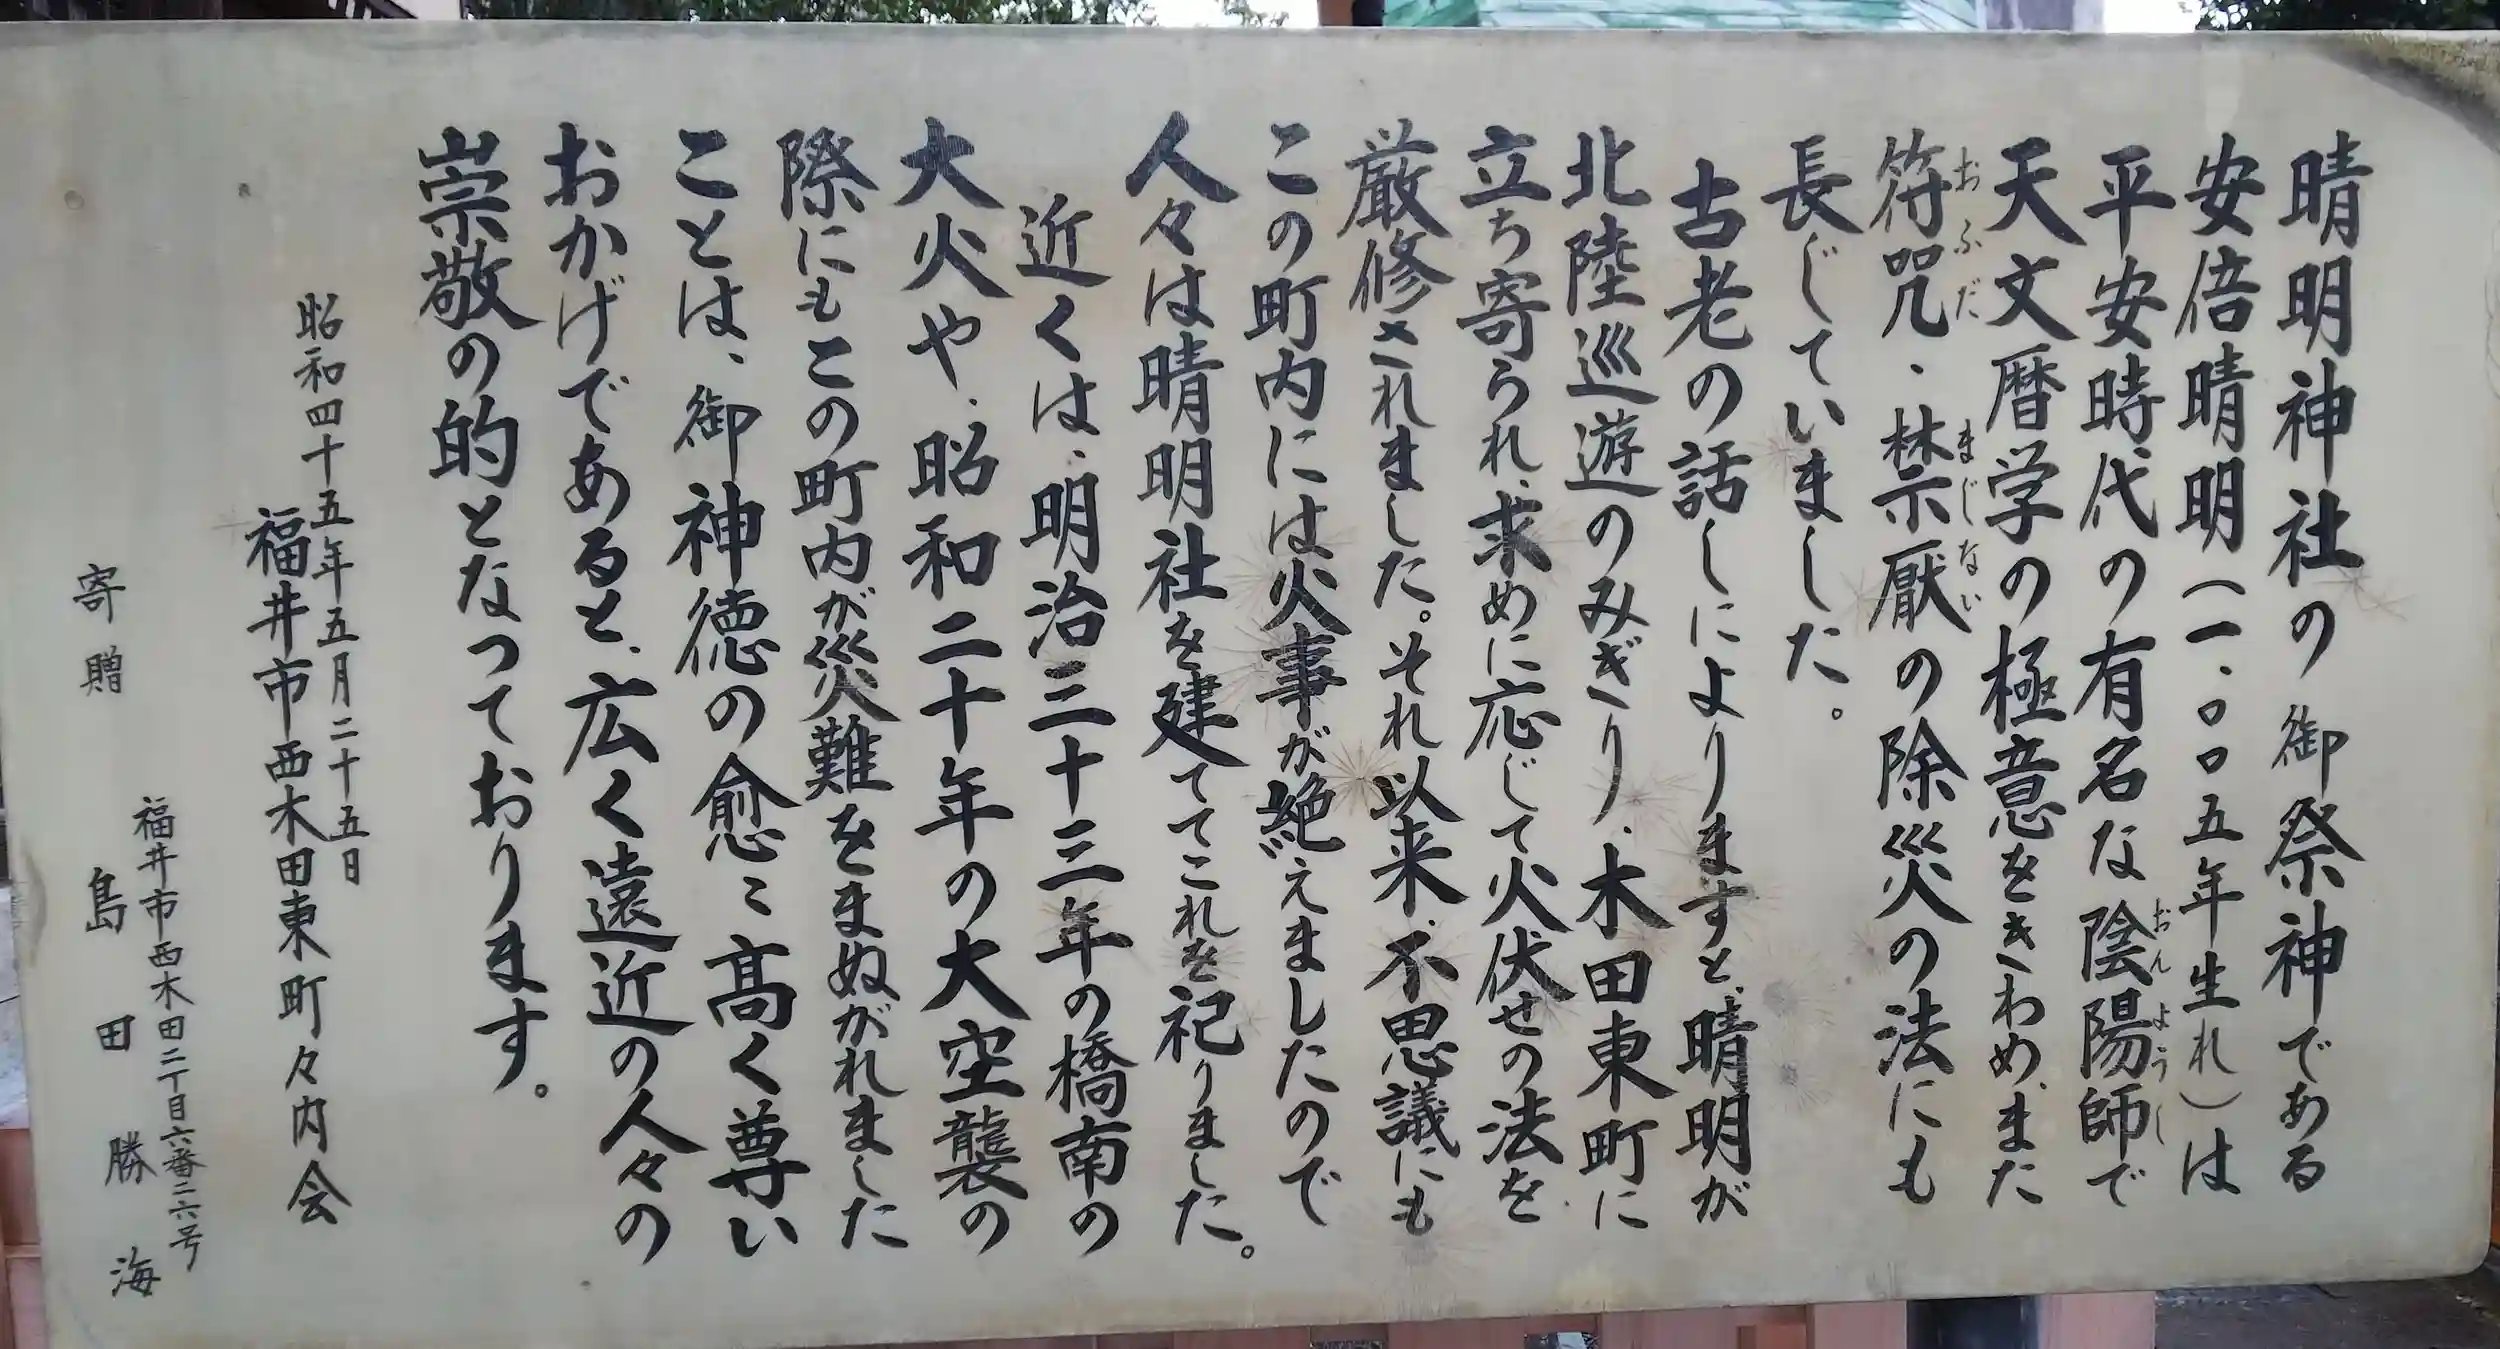 晴明神社の御祭神である
安倍晴明(一.〇〇五年生れ)は
平安時代の有名な陰陽師で
おんようし
天文暦学の極意をきわめ、また
符咒・禁厭の除災の法にも
おふだ まじない
長じていました。
古老の話しによりますと、晴明が
北陸巡遊のみぎり、木田東町に
立ち寄られ、求めに応じて火伏せの法を
厳修されました。それ以来、不思議にも
この町内には火事が絶えましたので
人々は晴明社を建ててこれを祀りました。
近くは、明治三十三年の橋南の
大火や、昭和二十年の大空襲の
際にもこの町内が災難をまぬがれました
ことは、御神徳の愈〻高く尊い
おかげであると、広く遠近の人々の
崇敬の的となっております。
昭和四十五年五月二十五日
福井市西木田東町々内会
福井市西木田二丁目六番二六号
寄贈 島田勝海